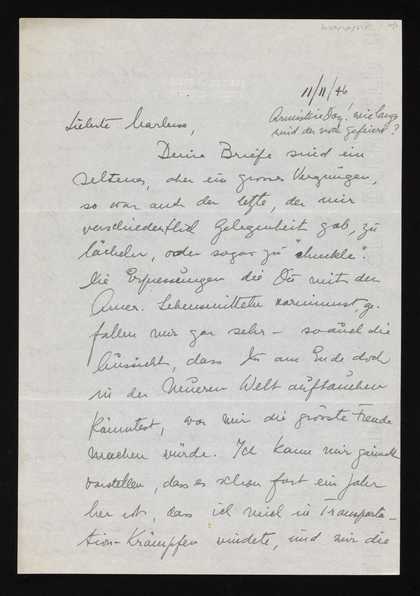 11/11/46
Armistice Day! wie lang
wird der noch gefeiert?
Liebste Marlene,
Deine Briefe sind ein
seltenes, aber ein grosses Vergnügen,
so war auch der letzte, der mir
verschiedentlich Gelegenheit gab, zu
lächeln, oder sogar zu "chuckle".
Die die Du mit den
Amer. Lebensmitteln vornimmst, ge-
fallen mir gar sehr – so auch die
Aussicht, dass Du am Ende doch
in der Neueren Welt auftauchen
könntest, was mir die grösste Freude
machen würde. Ich kann mir garnicht
vorstellen, dass es schon fast ein Jahr
her ist, dass ich mich in Transporta-
tion-Krämpfen windete, und mir die